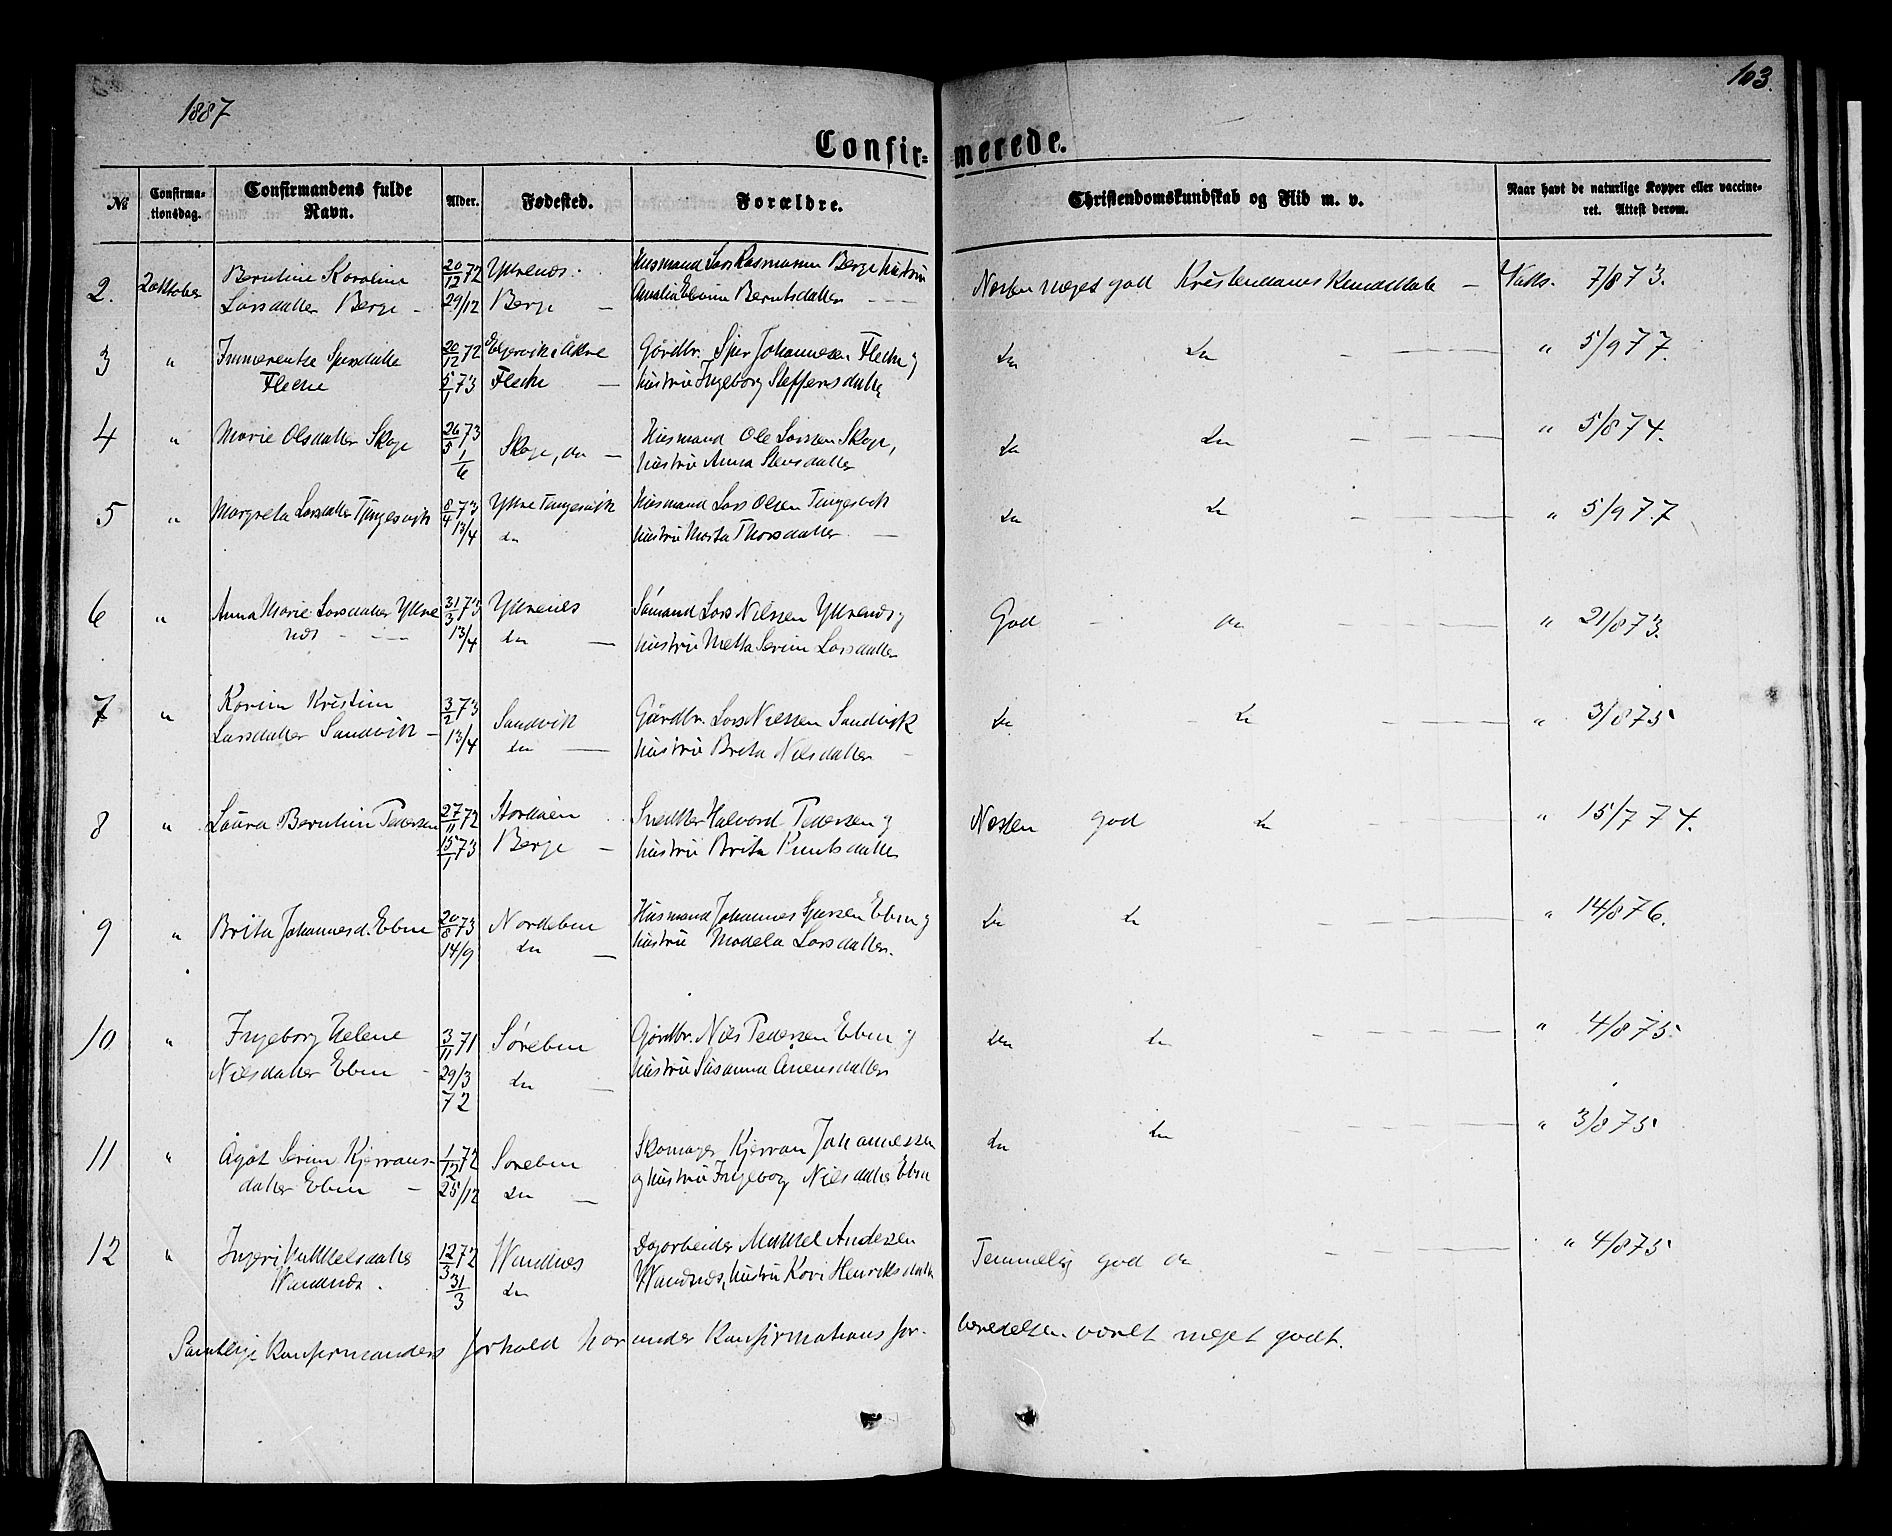 1887
103.
Confirmerede.
№
Confirmationsdag.
Confirmandens fulde Navn.
Alder.
Fødested.
Forældre.
Christendomskundskab og Flid m. v.
Naar havt de naturlige Kopper eller vaccineret. Attest derom.
2. 2 oktober Berntine Karoline 20/12 72 Ytrenæs. Husmand Lars Rasmussen Berge hustru Næsten meget god Kristendoms Kundskab — Vaks. 7/8 73.
Larsdatter Berge - 29/12 Berge — Amalia Berntsdatter
3 " Spersdatter 20/12 72 Gaardbr. Sjur Johannesen Fleche og do do — " 5/9 77.
Fleche 5/1 73 Fleche — hustru Ingeborg Steffensdatter
4 " Marie Olsdatter Skoge 26/5 73 Skoge, do — Husmand Ole Larssen Skoge, do do — " 5/8 74.
1/6 hustru Anna Stensdatter
5 " Margreta Larsdatter Tungesvik 8/4 73 Ytre Tungesvik Husmand Lars Olsen Tungesvik do do — " 5/9 77
13/4 do hustru Marta Thorsdatter —
6 " Anna Marie Larsdatter Ytre 31/3 73 Ytrenes Sømand Lars Nilssen Ytrenæs og God do — " 21/8 73.
næs 13/4 do — hustru Metta Serine Larsdatter
7 " Karine Kristine 3/2 73 Sandvik Gaardbr. Lars Nilssen Sandvik do do — " 3/8 75
Larsdatter Sandvik - 13/4 do — hustru Brita Nilsdatter
8 " Laura Berntine Pedersen 27/11 72 Stordøen Snedker Halvard Pedersen og Næsten god do — " 15/7 74.
15/1 73 Berge — hustru Brita Knutsdatter
9 " Brita Johannesd. Ebne 20/8 73 Nordebne Husmand Johannes Sjursen Ebne og do do — " 14/8 76.
14/9 do — hustru Madela Larsdatter.
10 " Ingeborg Helene 3/11 71 Sørebne Gaardbr. Nils Pedersen Ebne og do do — " 4/8 75.
Nilsdatter Ebne - 29/3 do — hustru Susanna
72
11 " Ågåt Serine Kjervans- 1/12 72 Sørebne Skomager Kjervan Johannessen do do — " 3/8 75
datter Ebne — 25/12 do — og hustru Ingeborg Nilsdatter Ebne
12 " Ingeri Mikkelsdatter 12/3 72 Vandnæs Dagarbeider Mikkel Andersen Temmelig god do — " 4/8 75
Vandnæs. 31/3 do Vandnæs, hustru Kari Henriksdatter
Samtlige konfirmanders forhold har under konfirmationsfor- beredelsen vært meget godt.